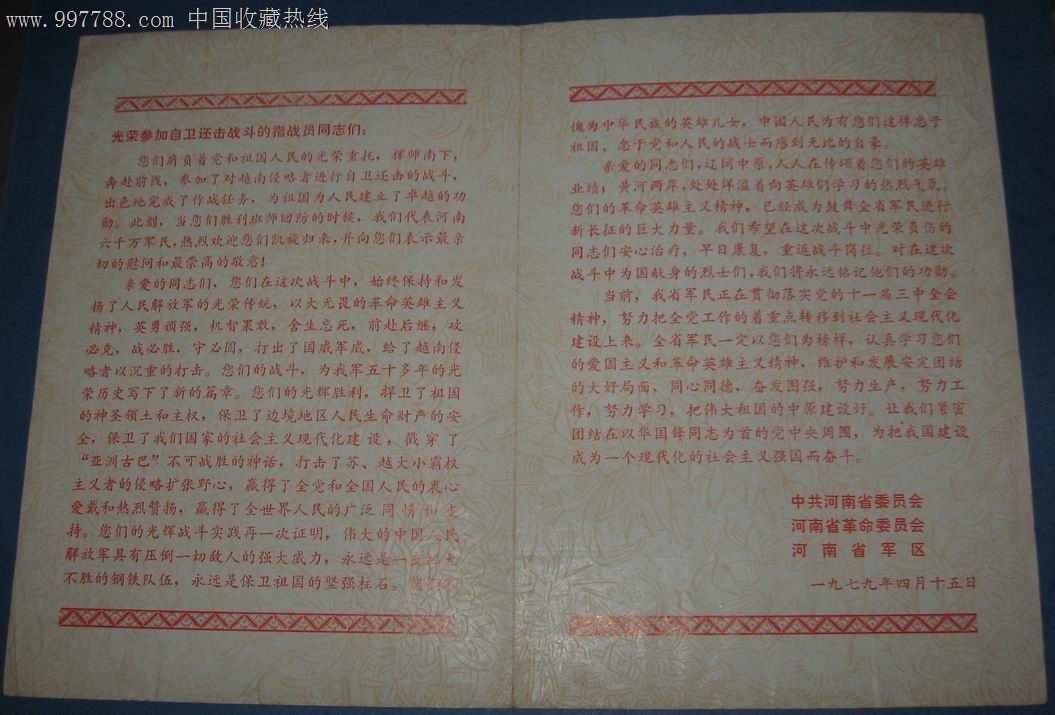 www.997788.com 中国收藏热线
光荣参加自卫还击战斗的指战员同志们：
您们肩负着党和祖国人民的光荣重托，挥师南下，
奔赴前线，参加了对越南侵略者进行自卫还击的战斗，
出色地完成了作战任务，为祖国为人民建立了卓越的功
勋。此刻，当您们胜利班师回防的时候，我们代表河南
六千万军民，热烈欢迎您们凯旋归来，并向您们表示最亲
切的慰问和最崇高的敬意！
亲爱的同志们，您们在这次战斗中，始终保持和发
扬了人民解放军的光荣传统，以大无畏的革命英雄主义
精神，英勇顽强，机智果敢，舍生忘死，前赴后继，攻
必克，战必胜，守必固，打出了国威军威，给了越南侵
略者以沉重的打击。您们的战斗，为我军五十多年的光
荣历史写下了新的篇章。您们的光辉胜利，捍卫了祖国
的神圣领土和主权，保卫了边境地区人民生命财产的安
全，保卫了我们国家的社会主义现代化建设，戳穿了
“亚洲古巴”不可战胜的神话，打击了苏、越大小霸权
主义者的侵略扩张野心，赢得了全党和全国人民的衷心
爱戴和热烈赞扬，赢得了全世界人民的广泛同情和支
持。您们的光辉战斗实践再一次证明，伟大的中国人民
解放军具有压倒一切敌人的强大威力，永远是一支战无
不胜的钢铁队伍，永远是保卫祖国的坚强柱石。您们不
愧为中华民族的英雄儿女，中国人民为有您们这样忠于
祖国，忠于党和人民的战士而感到无比的自豪。
亲爱的同志们，辽阔中原，人人在传颂着您们的英雄
业绩；黄河两岸，处处洋溢着向英雄们学习的热烈气氛。
您们的革命英雄主义精神，已经成为鼓舞全省军民进行
新长征的巨大力量。我们希望在这次战斗中光荣负伤的
同志们安心治疗，早日康复，重返战斗岗位。对在这次
战斗中为国献身的烈士们，我们将永远铭记他们的功勋。
当前，我省军民正在贯彻落实党的十一届三中全会
精神，努力把全党工作的着重点转移到社会主义现代化
建设上来。全省军民一定以您们为榜样，认真学习您们
的爱国主义和革命英雄主义精神，维护和发展安定团结
的大好局面，同心同德，奋发图强，努力生产，努力工
作，努力学习，把伟大祖国的中原建设好。让我们紧密
团结在以华国锋同志为首的党中央周围，为把我国建设
成为一个现代化的社会主义强国而奋斗。
中共河南省委员会
河南省革命委员会
河南省军区
一九七九年四月十五日